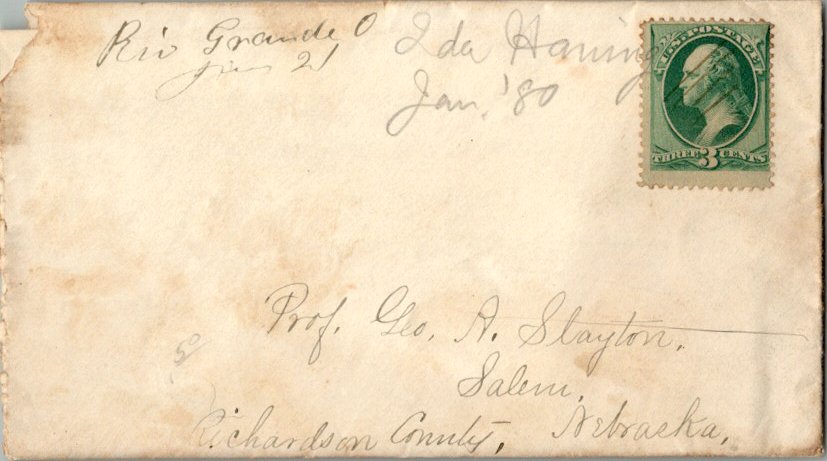 Rio Grande O
Jan 21
Ida Haning
Jan. '80
U.S. POSTAGE
THREE 3 CENTS
Prof. Geo. A. Slayton.
Salem,
Richardson County, Nebraska,